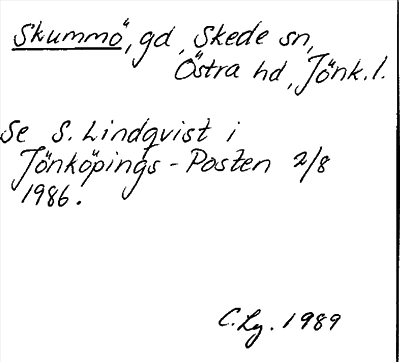 Skummö, gd, Skede sn,
Östra hd, Jönk.l.
Se S. Lindqvist i
Jönköpings-Posten 2/8
1986.
C.Lg. 1989